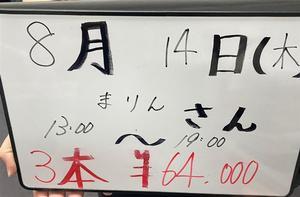 8月 14日(木
まりん さん
13:00 〜 19:00
3本 ¥64.000